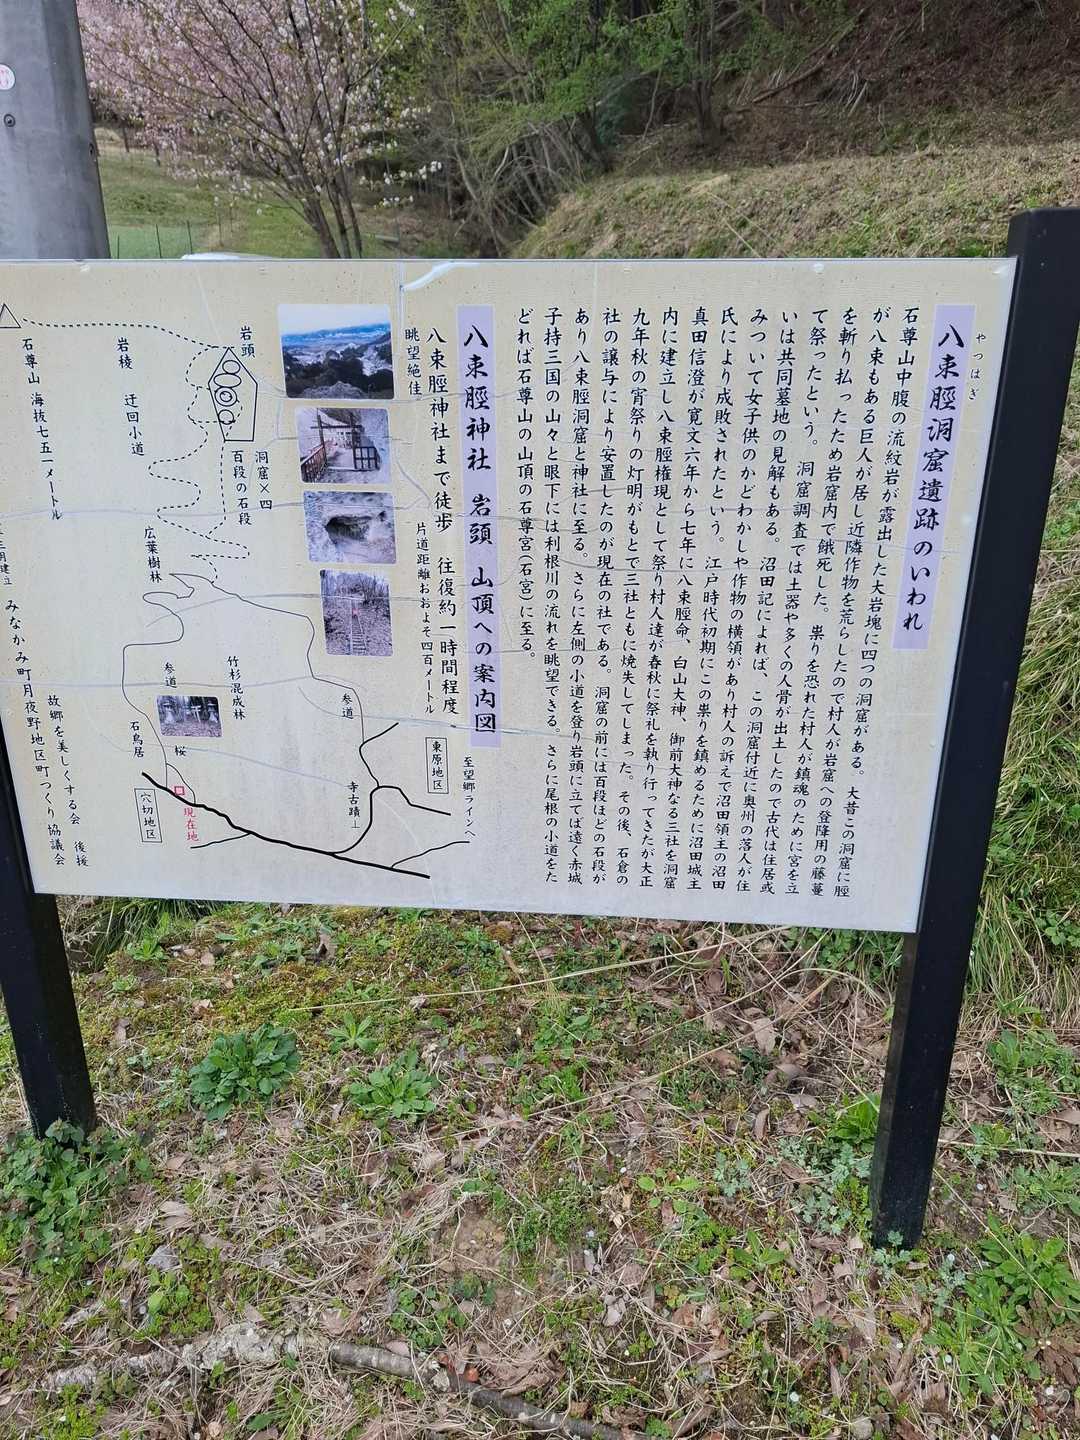 八束脛洞窟遺跡のいわれ
やつはぎ
石尊山中腹の流紋岩が露出した大岩塊に四つの洞窟がある。大昔この洞窟に脛
が八束もある巨人が居し近隣作物を荒らしたので村人が岩窟への登降用の藤蔓
を斬り払ったため岩窟内で餓死した。祟りを恐れた村人が鎮魂のために宮を立
て祭ったという。洞窟調査では土器や多くの人骨が出土したので古代は住居或
いは共同墓地の見解もある。沼田記によれば、この洞窟付近に奥州の落人が住
みついて女子供のかどわかしや作物の横領があり村人の訴えで沼田領主の沼田
氏により成敗されたという。江戸時代初期にこの祟りを鎮めるために沼田城主
真田信澄が寛文六年から七年に八束脛命、白山大神、御前大神なる三社を洞窟
内に建立し八束脛権現として祭り村人達が春秋に祭礼を執り行ってきたが大正
九年秋の宵祭りの灯明がもとで三社ともに焼失してしまった。その後、石倉の
社の譲与により安置したのが現在の社である。洞窟の前には百段ほどの石段が
あり八束脛洞窟と神社に至る。さらに左側の小道を登り岩頭に立てば遠く赤城
子持三国の山々と眼下には利根川の流れを眺望できる。さらに尾根の小道をた
どれば石尊山の山頂の石尊宮(石宮)に至る。
八束脛神社 岩頭 山頂への案内図
八束脛神社まで徒歩 往復約一時間程度
片道距離おおよそ四百メートル
眺望絶佳
岩頭
洞窟×四
百段の石段
岩稜 迂回小道
石尊山 海抜七五一メートル
広葉樹林
竹杉混成林
参道
参道
石鳥居
桜
現在地
穴切地区
寺古蹟
東原地区
至望郷ラインへ
故郷を美しくする会 後援
みなかみ町月夜野地区町つくり協議会
月建立